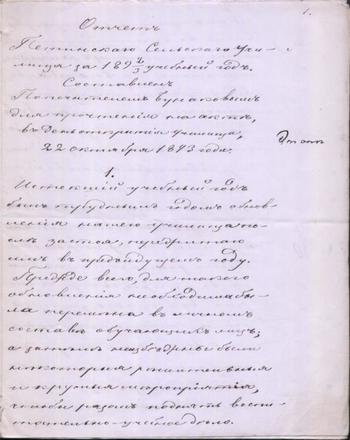 1.
Отчетъ
Петинскаго Сельскаго Учи-
лища за 189 2/3 учебный годъ.
Составленъ
Попечителемъ Бунаковымъ
для прочтенія на актѣ,
въ день открытія училища,
22 октября 1893 года.
1.
Истекшій учебный годъ
былъ годомъ обнов-
ленія нашего училища по-
слѣ застоя,
имъ въ предыдущемъ году.
Прежде всего, для такого
обновленія необходима бы-
ла перемѣна въ личномъ
составѣ обучающихъ лицъ;
а затѣмъ неизбѣжны были
нѣкоторыя рѣшительныя
и крупныя мѣропріятія,
чтобы разомъ поднять воспи-
тательно-учебное дѣло.